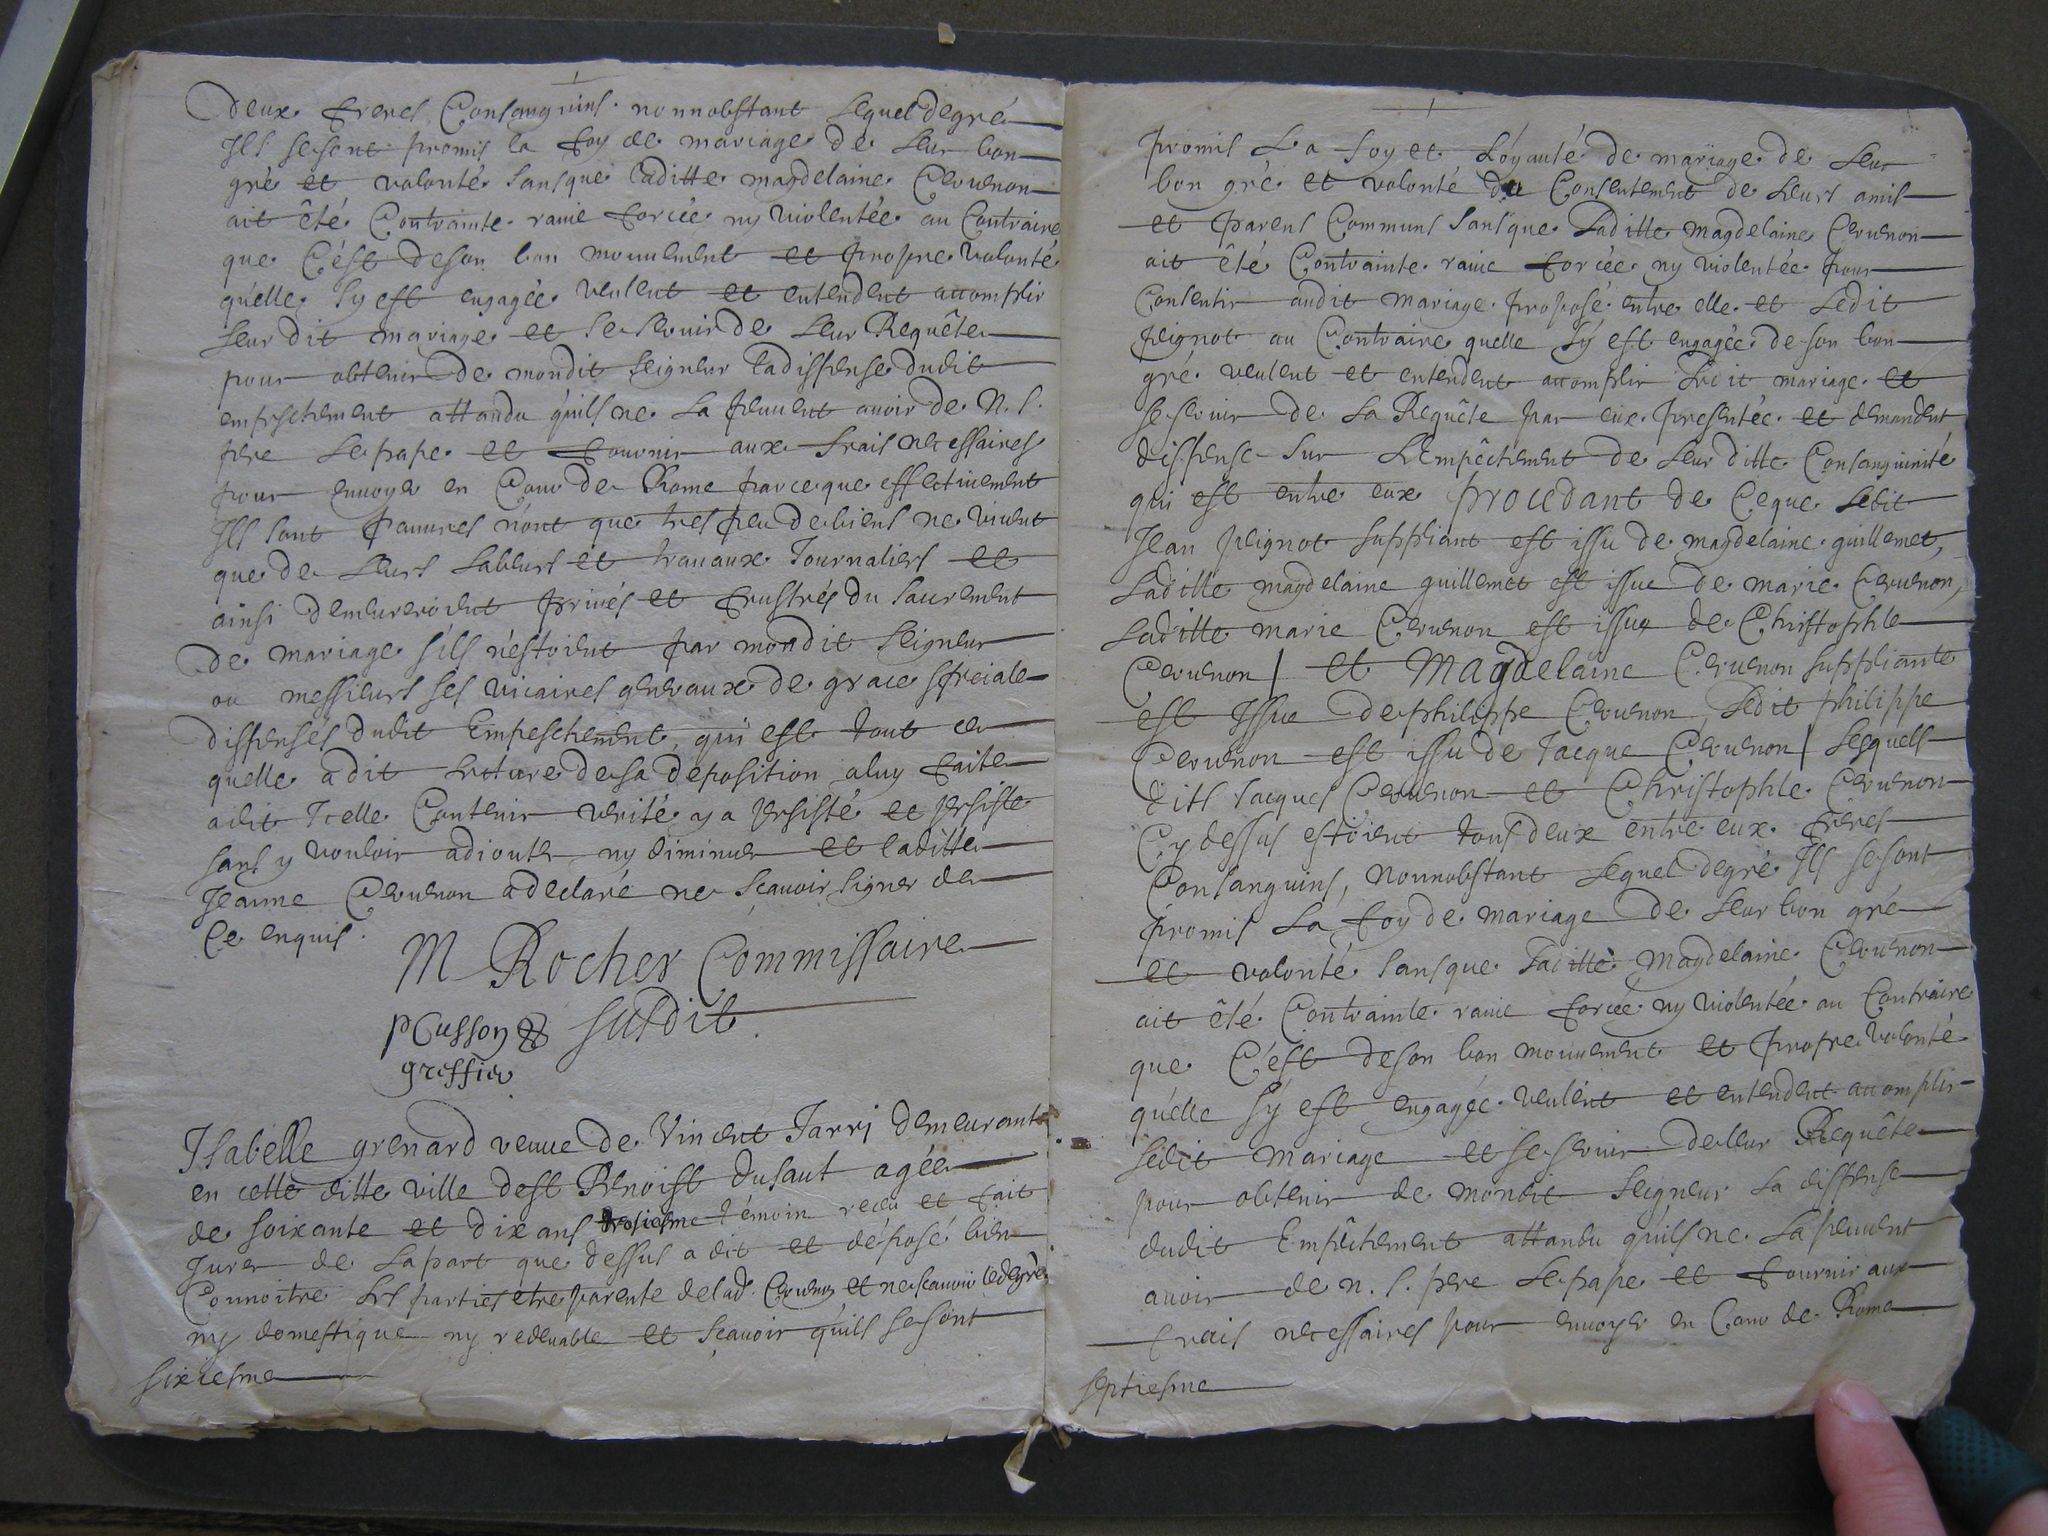 deux freres Consanguins. nonnobstant lequel degré
Ils se sont promis la foy de mariage de leur bon
gré et volonté sansque laditte magdelaine Cervenon
ait êté Contrainte ravie forcée ny violentée au Contraire
que C'est deson bon mouvement et propre volonté
qu'elle sy est engagée veulent et entendent accomplir
leurdit mariage et se servir de leur Requête
pour obtenir de mondit seigneur ladispense dudit
empeschement attandu quils ne la peuvent avoir de N. S.
pere le pape et fournir aux frais necessaires
pour envoyer en Cour de Rome parceque effectivement
Ils sont pauvres n'ont que tres peu de biens ne vivent
que de leurs labeurs et travaux Journaliers et
ainsi demeureroient privés et frustrés du sacrement
de mariage s'ils n'estoient par mondit seigneur
ou messieurs ses vicaires generaux de grace speciale
dispensés dudit Empeschement, qui est tout ce
quelle a dit lecture de sa deposition a luy faite
a dit Icelle Contenir verité y a persisté et persiste
sans y vouloir adjouter ny diminuer et laditte
Jeanne Cervenon a declaré ne sçavoir signer de
Ce enquis.
M Rocher Commissaire
susdit.
PCusson
greffier
Isabelle grenard veuve de Vincent Jarri demeurante
en cette ditte ville de st Benoist dusaut agée
de soixante et dix ans troisiesme témoin receu et fait
Jurer de lapart que dessus a dit et déposé bien
Connoitre les parties etre parente de lad. Cervenon et ne scavoir le degré
ny domestique ny redevable et sçavoir qu'ils se sont
sixiesme
promis La foy et Loyauté de mariage de leur
bon gré et volonté du Consentement de leurs amis
et parens Communs sansque Laditte magdelaine Cervenon
ait êté Contrainte ravie forcée ny violentée pour
Consentir audit mariage proposé entre elle et Ledit
peignot au Contraire quelle sy est engagée de son bon
gré veulent et entendent accomplir Ledit mariage et
se servir de La Requête par eux presentée et demandent
dispense sur L'Empêchement de leur ditte Consanguinité
qui est entre eux procedant de Ceque Ledit
Jean peignot suppliant est issu de magdelaine guillemet,
Laditte magdelaine guillemet est issue de marie Cervenon,
Laditte marie Cervenon est issue de Christophle
Cervenon / et Magdelaine Cervenon suppliante
est Issue de philippe Cervenon, Ledit philippe
Cervenon est issu de Jacque Cervenon / Lesquels
dits Jacques Cervenon et Christophle Cervenon
Cy dessus estoient tous deux entre eux freres
Consanguins, Nonnobstant Lequel degré Ils se sont
promis La foy de mariage de leur bon gré
et volonté sansque Laditte Magdelaine Cervenon
ait êté Contrainte ravie forcée ny violentée au Contraire
que C'est deson bon mouvement et propre volonté
qu'elle sy est engagée veulent et entendent accomplir
Ledit Mariage et se servir de leur Requête
pour obtenir de mondit seigneur La dispense
dudit Empêchement attandu qu'ils ne La peuvent
avoir de N. S. pere Le pape et fournir aux
frais necessaires pour envoyer en Cour de Rome
septiesme